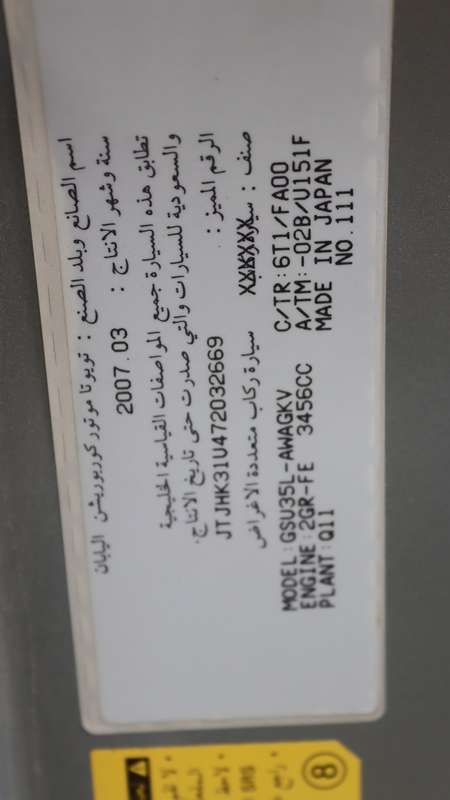 اسم الصانع وبلد الصنع : تويوتا موتور كوربوريشن اليابان
سنة وشهر الانتاج : 2007.03
تطابق هذه السيارة جميع المواصفات القياسية الخليجية
والسعودية للسيارات والتي صدرت حتى تاريخ الانتاج.
الرقم المميز : JTJHK31U472032669
صنف : سيارة سيارة ركاب متعددة الاغراض
MODEL:GSU35L-AWAGKV C/TR:6T1/FA00
ENGINE:2GR-FE 3456CC A/TM:-02B/U151F
PLANT:Q11 MADE IN JAPAN
NO.111
8